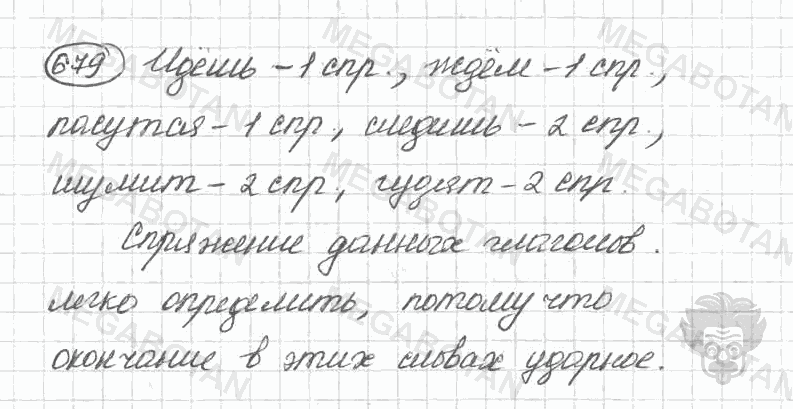 679 Идёшь – 1 спр., ждём – 1 спр.,
пасутся – 1 спр., следишь – 2 спр.,
шумит – 2 спр., гудят – 2 спр.
Спряжение данных глаголов.
легко определить, потому что
окончание в этих словах ударное.
MEGABOTAN